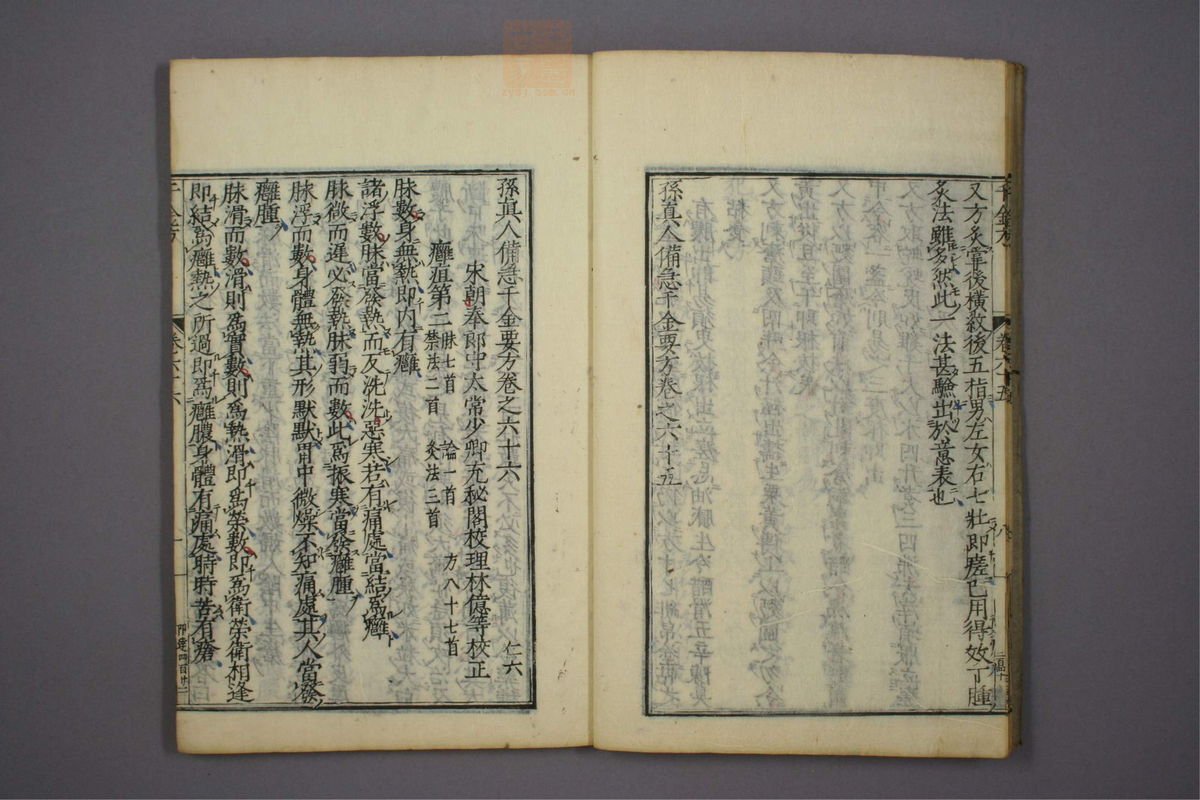 又方灸掌後橫紋後五指男左女右七壯即瘥已用得效丁腫
灸法雖多然此一法甚驗出於意表也
孫真人備急千金要方卷之六十五
千金方
卷六十五
孫真人備急千金要方卷之六十六
仁六
宋朝奉郎守太常少卿充秘閣校理林億等校正
癰疽第二
脉七首
論一首
方八十七首
禁法二首
灸法三首
脉數身無熱即内有癰
諸浮數脉當發熱而反洗洗惡寒若有痛處當結爲癰
脉微而遲必發熱脉弱而數此爲振寒當發癰腫
脉浮而數身體無熱其形默默胃中微燥不知痛處其人當發
癰腫
脉滑而數滑則爲實數則爲熱滑即爲榮數即爲衛榮衛相逢
即結爲癰熱之所過即爲癰膿身體有痛處時時苦有瘡
千金方
卷六十六